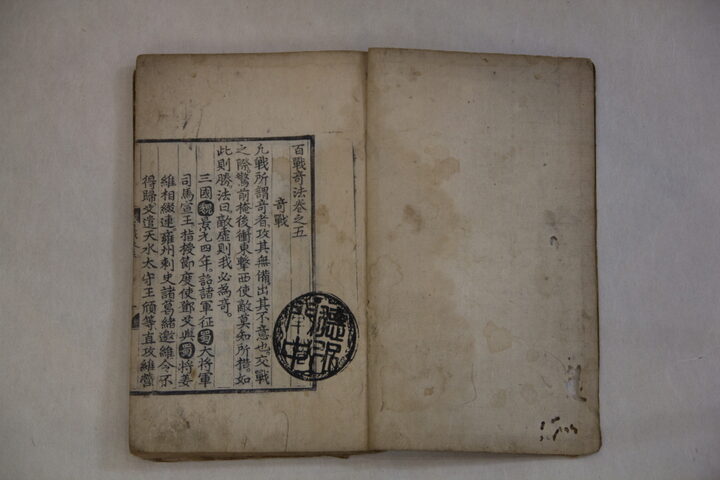 百戰奇法卷之五
奇戰
凡戰所謂奇者攻其無備出其不意也交戰
之際驚前掩後衝東擊西使敵莫知所備如
此則勝法曰敵虛則我必為奇
三國魏景元四年詔諸軍征蜀大將軍
司馬宣王指授節度使鄧艾與蜀將姜
維相綴連雍州刺史諸葛緒邀維令不
得歸艾遣天水太守王頎等直攻維營